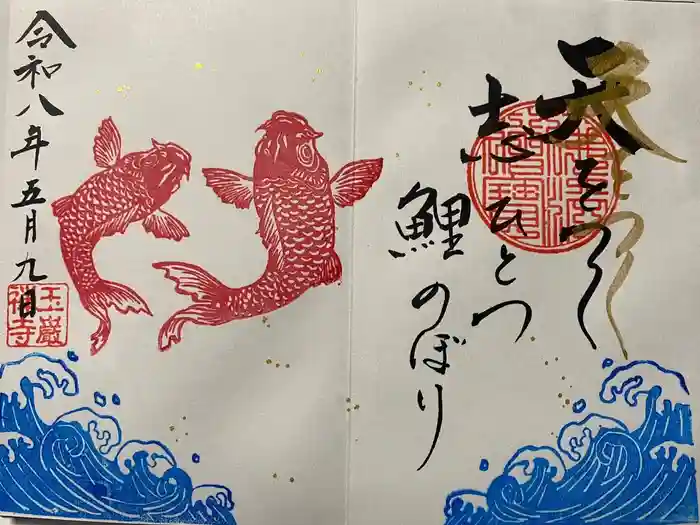 天をつく
志ひとつ
鯉のぼり
令和八年五月九日
玉巌
禅寺